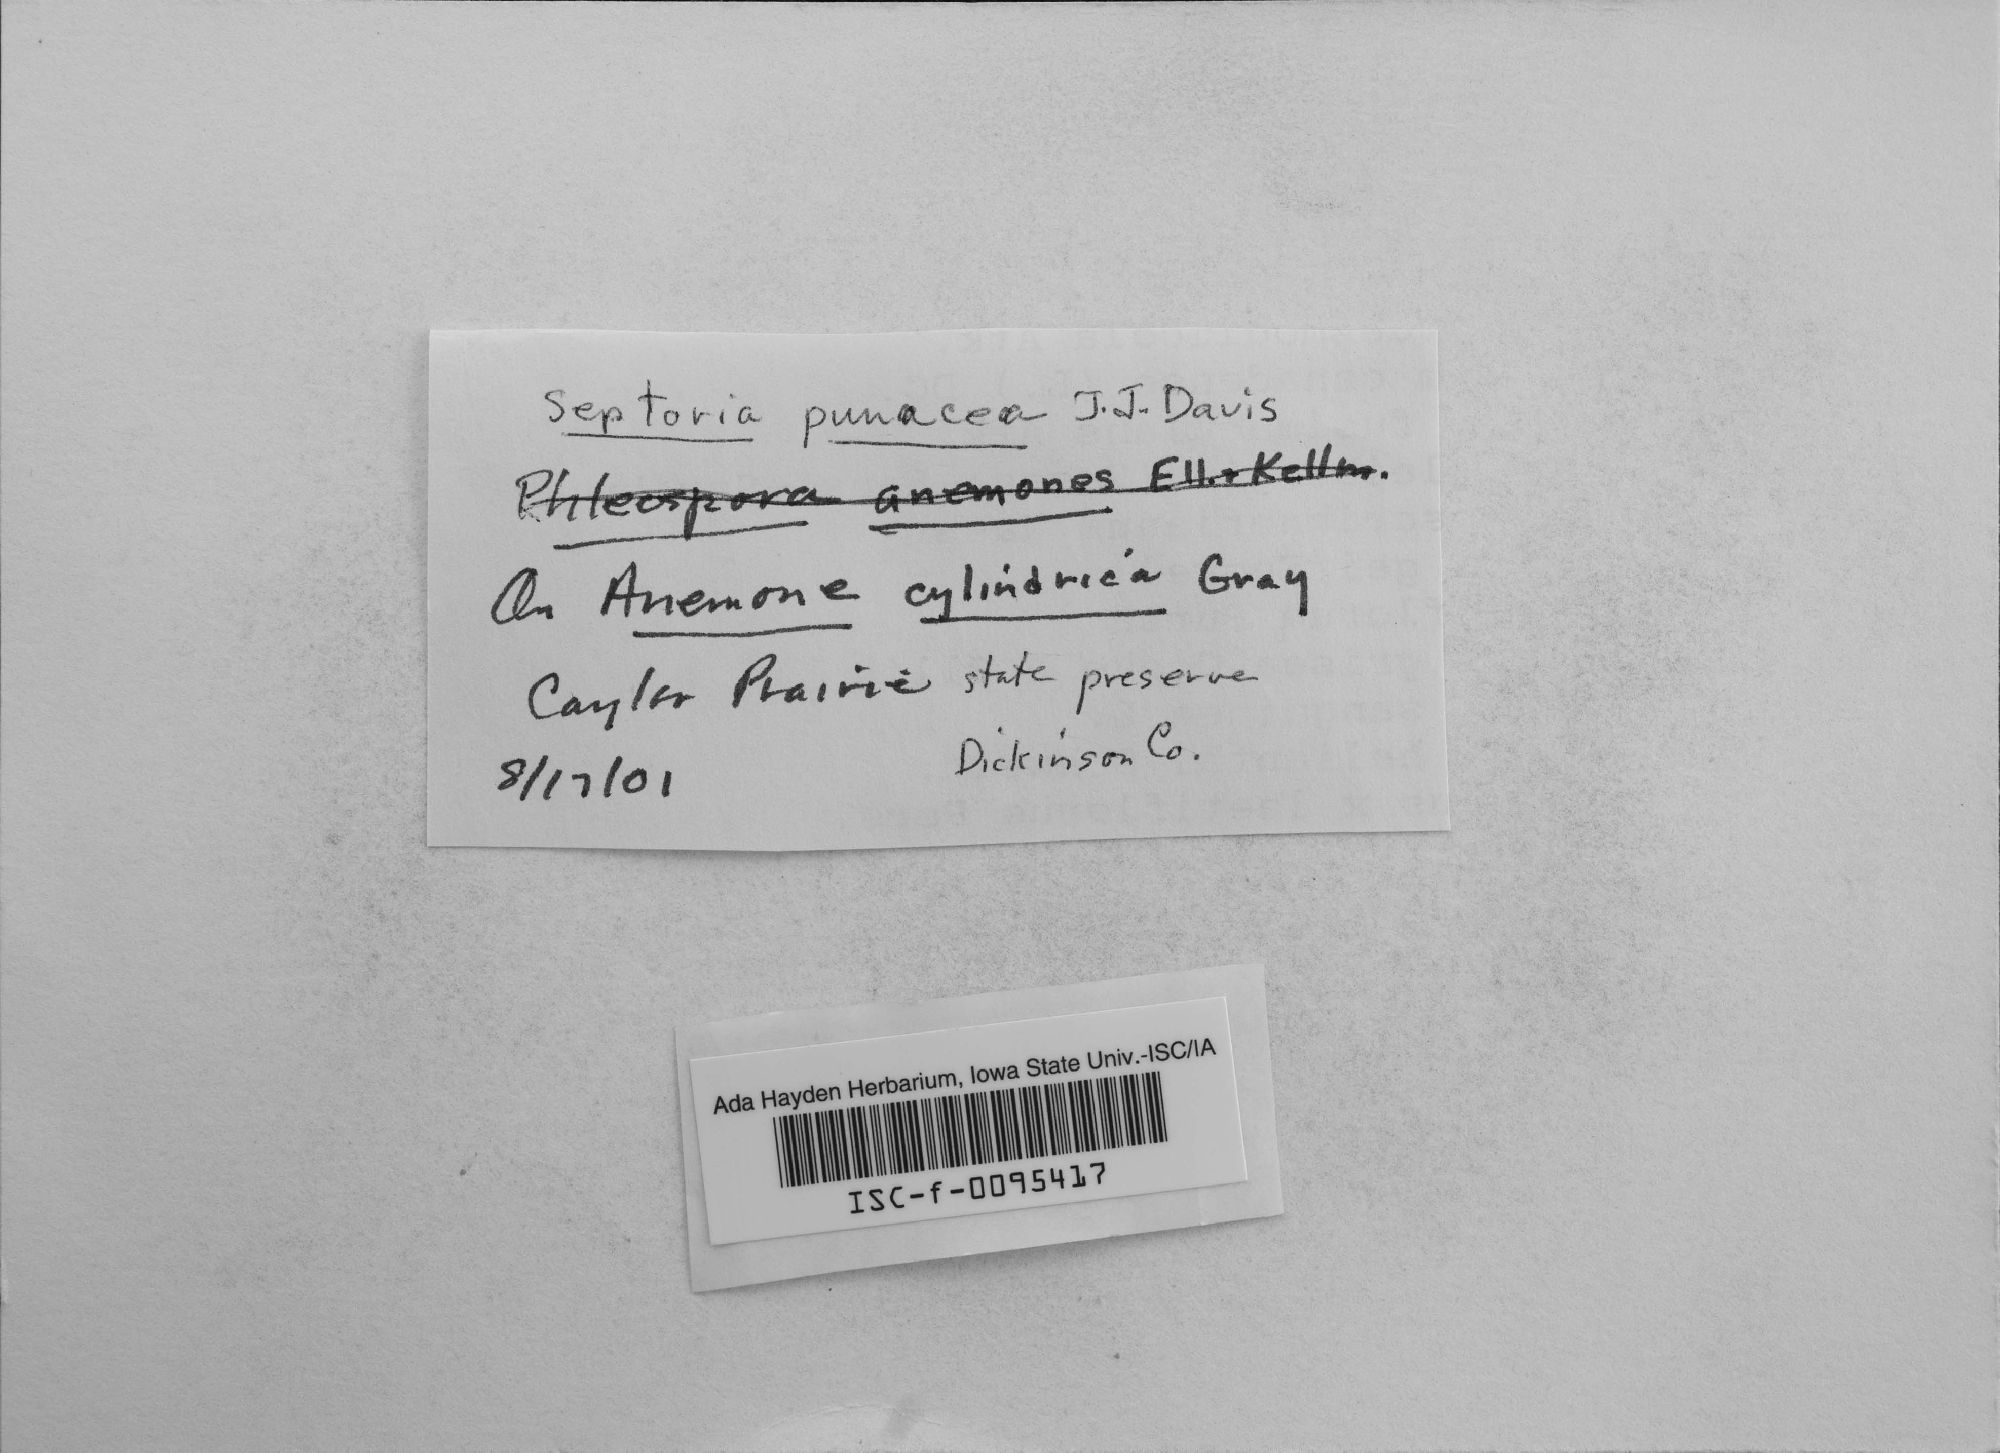 Septoria punacea J.J. Davis
Phleospora anemones Ell. + Kellm.
On Anemone cylindrica Gray
Cayler Prairie state preserve
Dickinson Co.
8/17/01
Ada Hayden Herbarium, Iowa State Univ.-ISC/IA
ISC-f-0095417